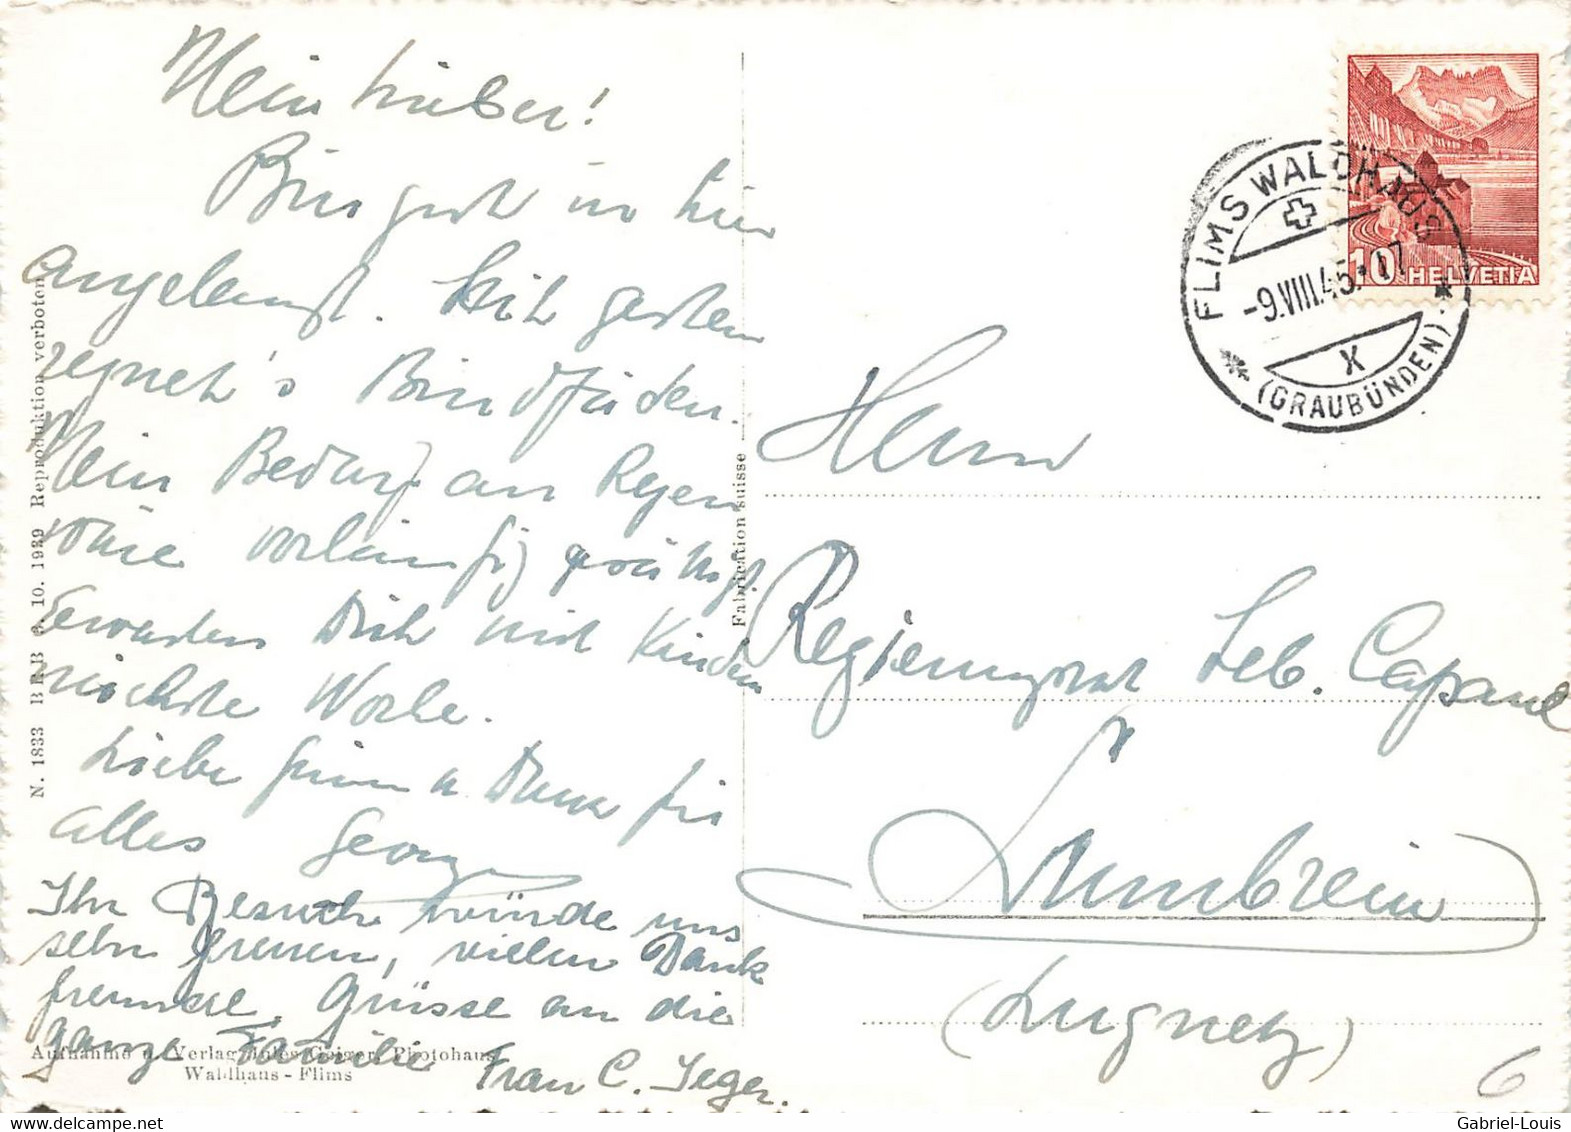 Mein Lieber!
Bin gut in hier
angelangt. Seit gestern
regnet's Bindfäden.
Mein Bedarf an Regen
wäre vorläufig gedeckt.
Erwarten Dich mit Kindern
nächste Woche.
Liebe Grüsse u Dank für
alles Georg
Ihr Besuch würde uns
sehr freuen, vielen Dank
freundl. Grüsse an die
ganze Familie Frau C. Jeger.
N. 1833 BRB 3. 10. 1939 Reproduktion verboten
Aufnahme u. Verlag Jules Geiger, Photohaus
Waldhaus - Flims
Fabrication suisse
10 HELVETIA
FLIMS WALDHAUS
-9.VIII.45.17
X
(GRAUBÜNDEN)
Herrn
Regierungsrat Seb. Capaul
Lumbrein
(Lugnetz)
6
Gabriel-Louis